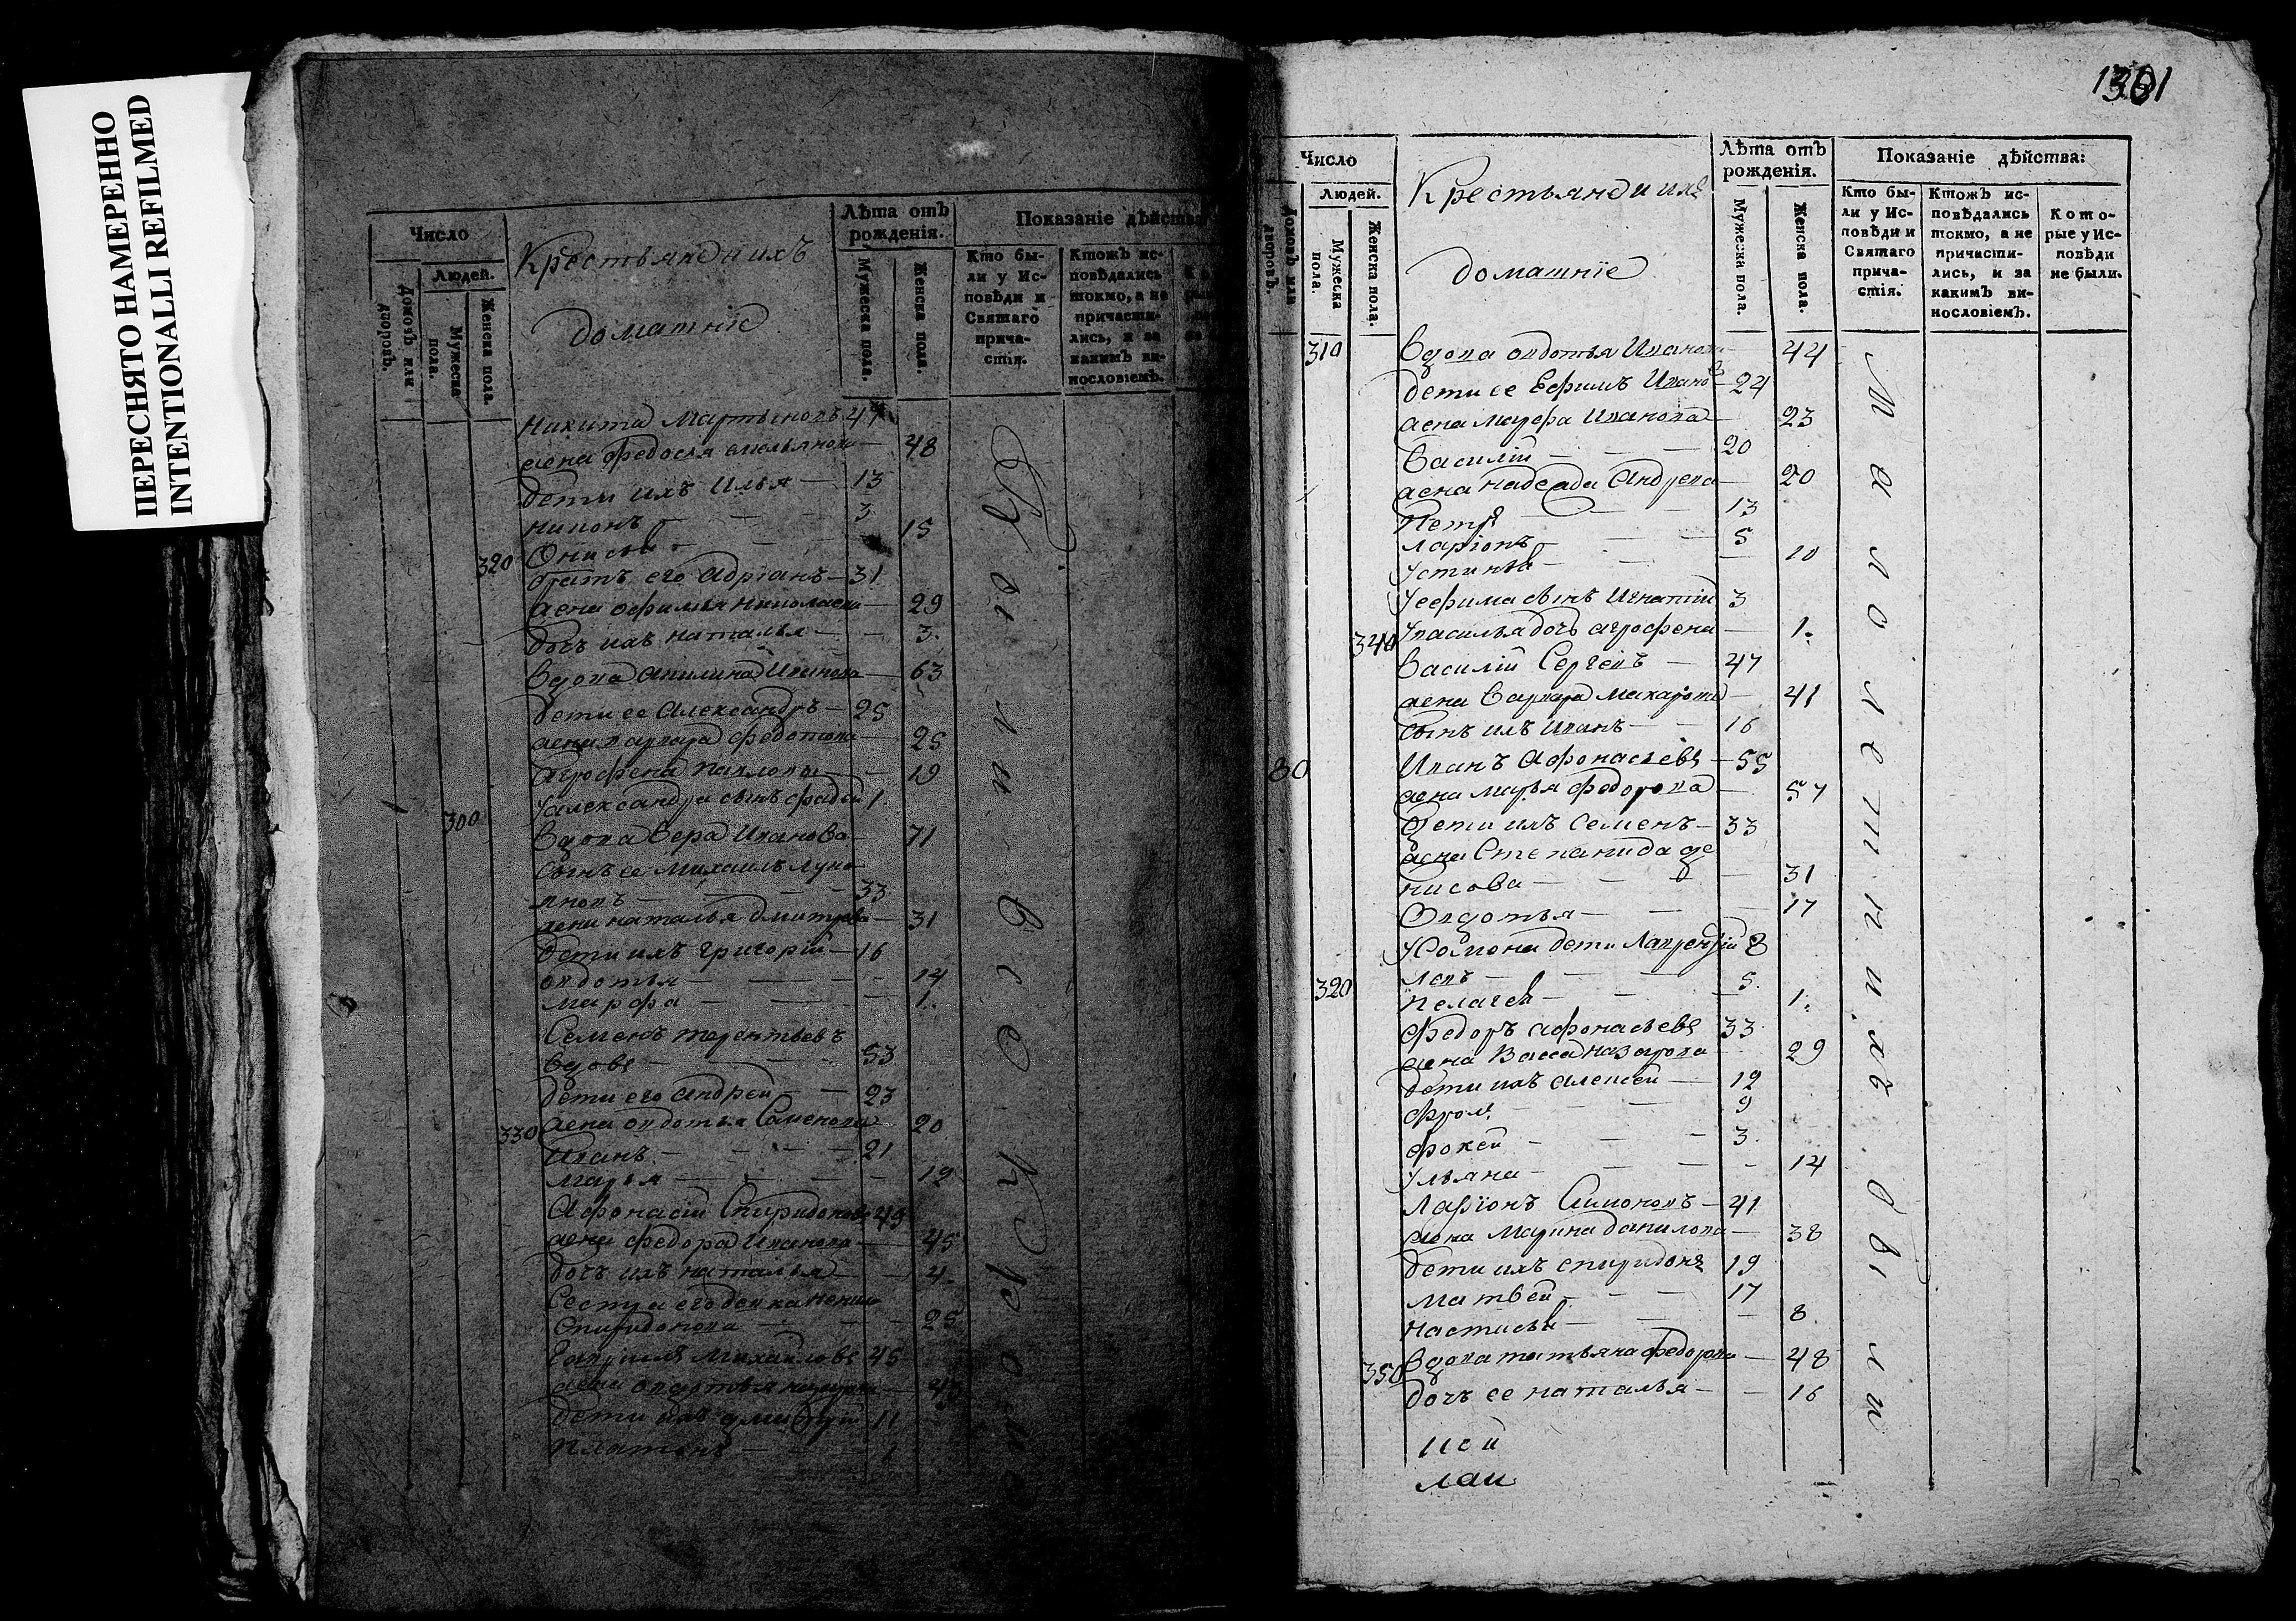 ПЕРЕСНЯТО НАМЕРЕННО
INTENTIONALLI REFILMED
Число
Людей.
Домовъ или дворовъ.
Мужеска пола.
Женска пола.
Крестьяне и ихъ
домашніе
Лѣта отъ рожденія.
Мужеска пола.
Женска пола.
Показаніе дѣйства
Кто были у Исповѣди и Святаго причастія.
Ктожъ исповѣдались токмо, а не причастились, и за какимъ винословіемъ.
Никита Мартыновъ 47
жена Федосья Емельянова 48
дети ихъ Илья 13
Нилонъ 3
320 Онисья 15
братъ его Адріанъ 31
жена Офимья Николаева 29
дочь ихъ Наталья 3
вдова Акилина Иванова 63
дети ее Александръ 25
жена Варвара Федотова 25
Агрофена Павлова 19
300 У александра сынъ Фадей 1
вдова Вера Иванова 71
Сынъ ее Михаилъ Луко
яновъ 33
жена Наталья Дмитрева 31
дети ихъ Григорій 16
Овдотья 14
Марфа 1
Семенъ Терентьевъ
вдовъ 53
дети его Андрей 23
330 жена Овдотья Семенова 20
Иванъ 21
Марья 19
Афонасій Спиридоновъ 49
жена Федора Иванова 45
дочь ихъ Наталья 4
Сестра его девка
Спиридонова 25
Гаврила Михаиловъ 45
жена Овдотья
дети ихъ Дмитрій 11
Платонъ
Были вси
1301
Число
Людей.
Домовъ или дворовъ.
Мужеска пола.
Женска пола.
Крестьяне и ихъ
домашніе
Лѣта отъ рожденія.
Мужеска пола.
Женска пола.
Показаніе дѣйства:
Кто были у Исповѣди и Святаго причастія.
Ктожъ исповѣдались токмо, а не причастились, и за какимъ винословіемъ.
Которые у Исповѣди не были.
310 вдова Овдотья Иванова 44
дети ее Ефимъ Ивановъ 24
жена Марфа Иванова 23
Василій 20
жена Надежда Андреева 20
Петръ 13
Ларіонъ 5
Устинья 10
У ефима сынъ Игнатій 3
340 У василья дочь Агрофена 1
Василій Сергеевъ 47
жена Варвара Макарова 41
Сынъ ихъ Иванъ 16
80 Иванъ Афонасьевъ 55
жена Марья Федорова 57
Дети ихъ Семенъ 33
жена Степанида Де
нисова 31
Овдотья 17
У Семена дети Лаврентій 8
Левъ 5
320 Пелагея 1
Федоръ Афонасьевъ 33
жена Васса Назарова 29
дети ихъ Алексей 12
Фролъ 9
Фокей 3
Ульяна 14
Ларіонъ Симоновъ 41
жена Марина Данилова 38
дети ихъ Спиридонъ 19
Матвей 17
Настасья 8
350 вдова Татьяна Федорова 48
дочь ее Наталья 16
исй
лаи
малолетнихъ были